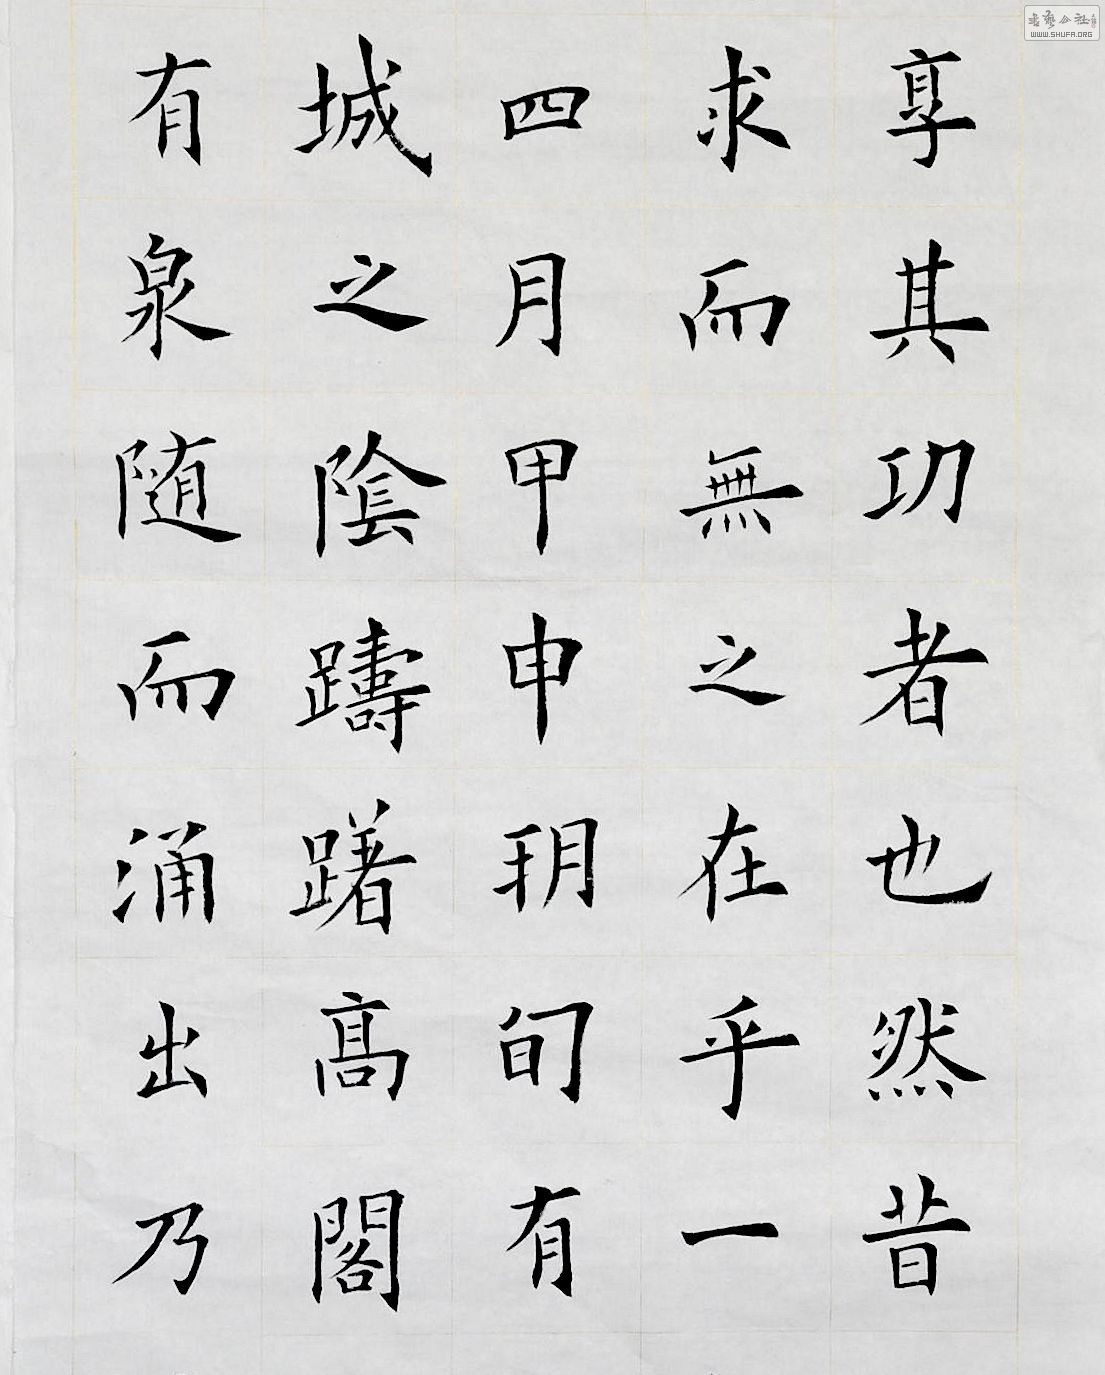 享其功者也然昔
求而無之在乎一
四月甲申朔旬有
城之陰躊躇髙閣
有泉随而涌出乃
書藝公社
WWW.SHUFA.ORG